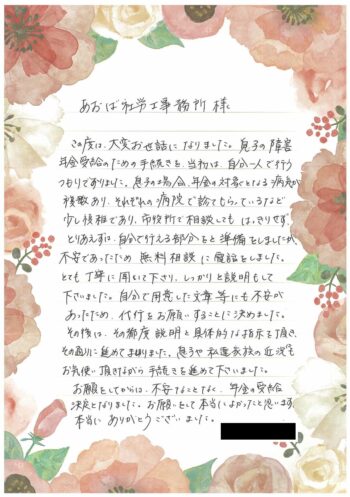 あおば社労士事務所 様
この度は、大変お世話になりました。息子の障害
年金受給のための手続きを、当初は、自分一人で行う
つもりでありました。息子の場合、年金の対象となる病気が
複数あり、それぞれの病院で診てもらっているなど
少し複雑であり、市役所で相談しても はっきりせず、
とりあえずは、自分で行える部分をと準備をしましたが、
不安であったため 無料相談に電話をしました。
とても丁寧に聞いて下さり、しっかりと説明もして
下さいました。自分で用意した文章等にも不安が
あったため、代行をお願いすることに決めました。
その後は、その都度説明と具体的な指示を頂き、
その通りに進めてまいりました。息子や私達家族の近況も
お気遣い頂きながら手続きを進めて下さいました。
お願いをしてからは、不安なことなく、年金の受給
決定となりました。お願いをして本当によかったと思います。
本当に ありがとうございました。